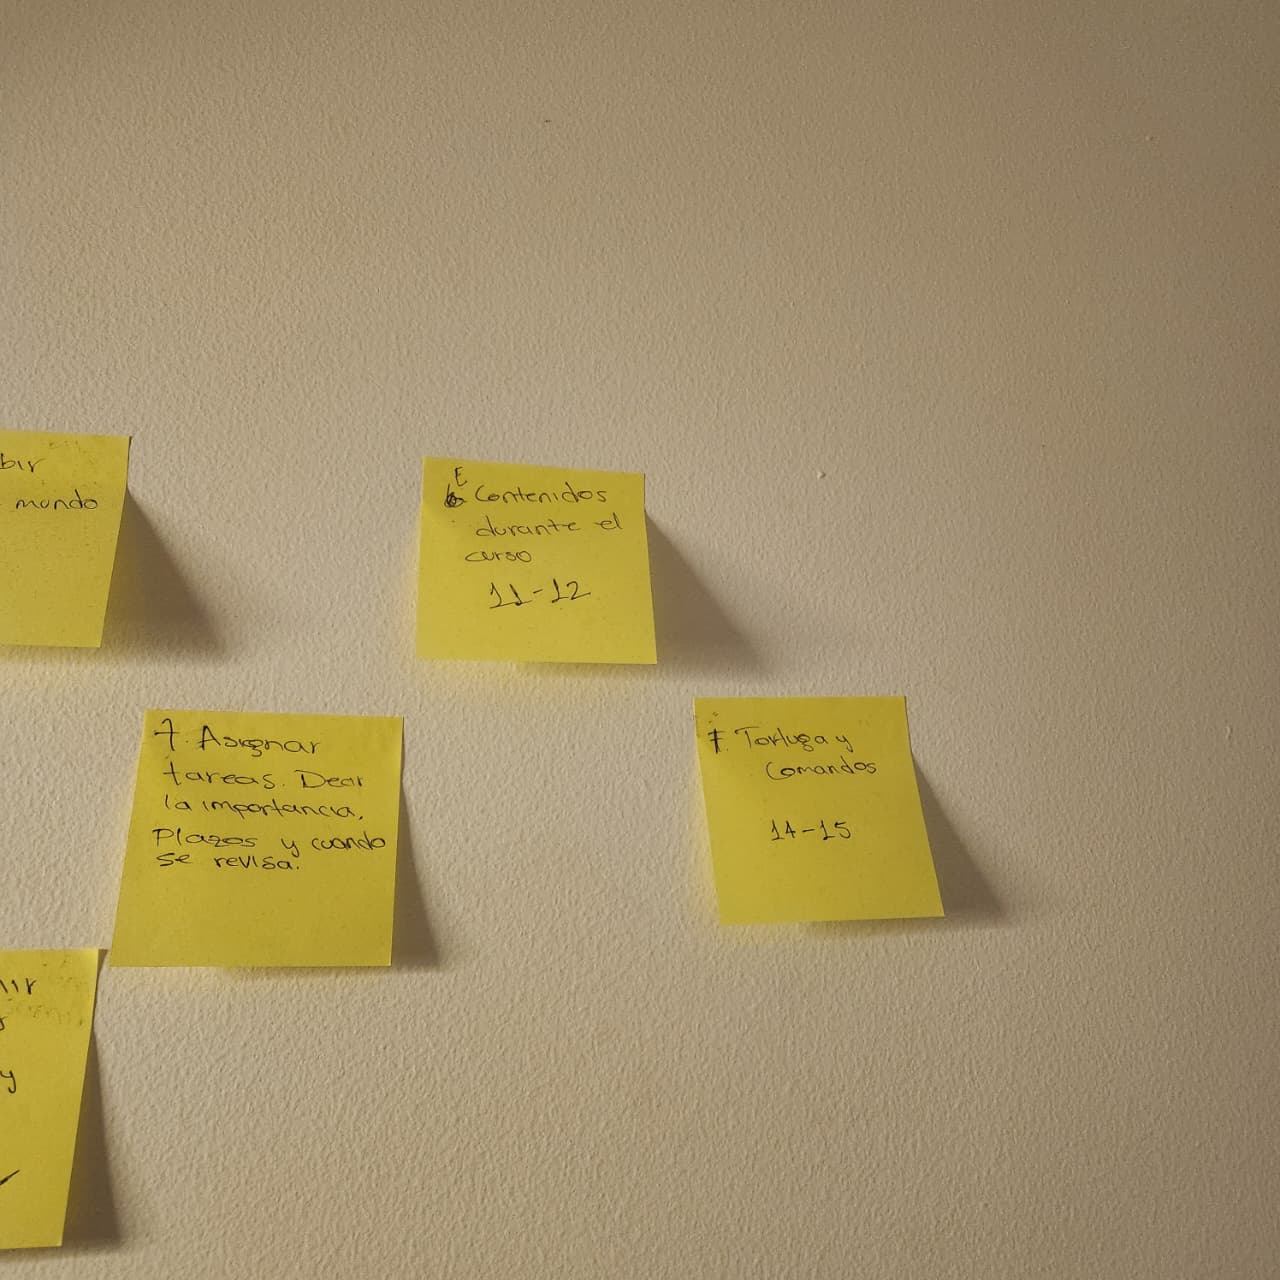 bir
mundo
E
Contenidos
durante el
curso
11-12
7. Asignar
tareas. Decir
la importancia.
Plazos y cuando
se revisa.
Tortuga y
Comandos
14-15
y